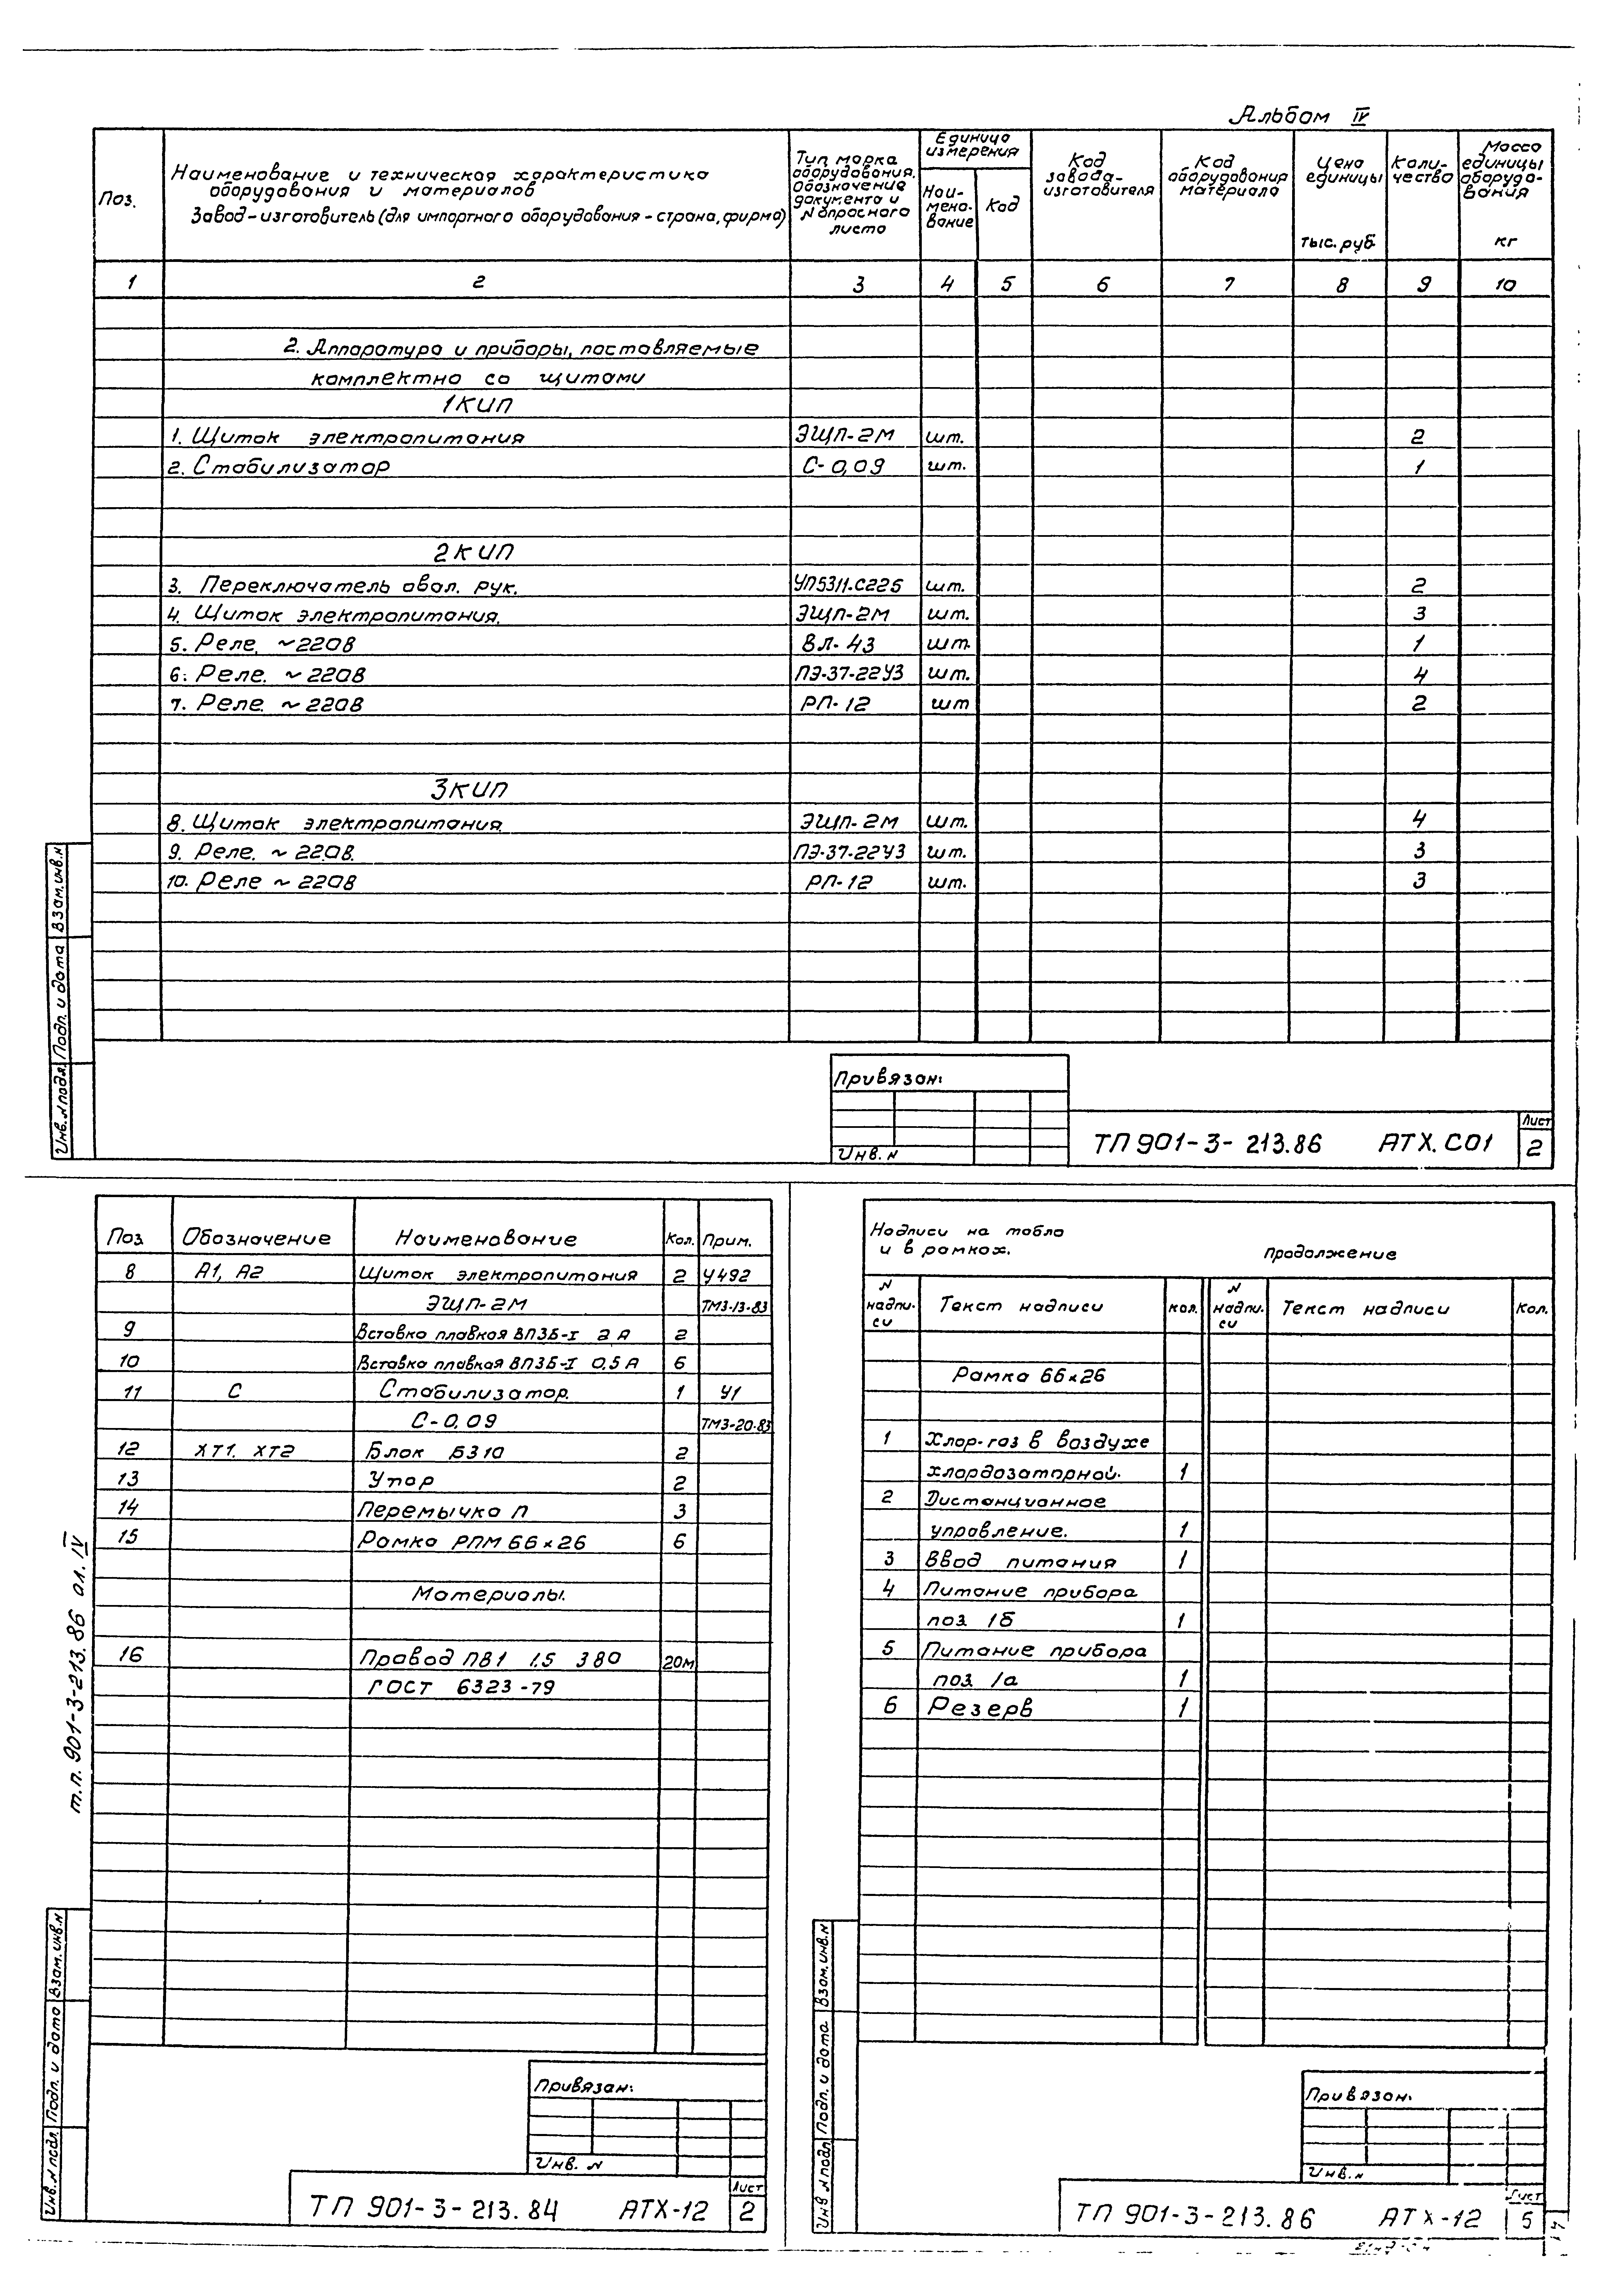 Альбом IV
Поз.
Наименование и техническая характеристика
оборудования и материалов
Завод-изготовитель (для импортного оборудования - страна, фирма)
Тип марка
оборудования.
обозначение
документа и
N опросного
листа
Единица
измерения
Наи-
мено-
вание
Код
Код
завода-
изготовителя
Код
оборудования
материала
Цена
единицы
тыс. руб.
Коли-
чество
Масса
единицы
оборудо-
вания
кг
1 2 3 4 5 6 7 8 9 10
2. Аппаратура и приборы, поставляемые
комплектно со щитами
1КИП
1. Щиток электропитания ЭЩП-2М шт. 2
2. Стабилизатор С-0,09 шт. 1
2КИП
3. Переключатель овал. рук. УП5311-С225 шт. 2
4. Щиток электропитания. ЭЩП-2М шт. 3
5. Реле. ~220В ВЛ-43 шт. 1
6. Реле. ~220В ПЭ-37-22У3 шт. 4
7. Реле. ~220В РП-12 шт 2
3КИП
8. Щиток электропитания. ЭЩП-2М шт. 4
9. Реле. ~220В. ПЭ-37-22У3 шт. 3
10. Реле ~220В РП-12 шт. 3
Взам. инв. N
Подп. и дата
Инв. N подл.
Привязан:
Инв. N
ТП 901-3-213.86 АТХ.СО1
Лист
2
Поз. Обозначение Наименование Кол. Прим.
8 А1, А2 Щиток электропитания 2 У492
ЭЩП-2М ТМ3-13-83
9 Вставка плавкая ВП3Б-I 2А 2
10 Вставка плавкая ВП3Б-I 0,5А 6
11 С Стабилизатор. 1 У1
С-0,09 ТМ3-20-83
12 ХТ1. ХТ2 Блок Б310 2
13 Упор 2
14 Перемычка П 3
15 Рамка РПМ 66х26 6
Материалы.
16 Провод ПВ1 1,5 380 20м
ГОСТ 6323-79
т.п. 901-3-213.86 ал. IV
Взам. инв. N
Подп. и дата
Инв. N подл.
Привязан:
Инв. N
ТП 901-3-213.84 АТХ-12
Лист
2
Надписи на табло
и в рамках.
Продолжение
N
надпи-
си
Текст надписи
кол.
N
надпи-
си
Текст надписи
Кол.
Рамка 66х26
1 Хлор-газ в воздухе
хлордозаторной. 1
2 Дистанционное
управление. 1
3 Ввод питания 1
4 Питание прибора
поз 1б 1
5 Питание прибора
поз. 1а 1
6 Резерв 1
Взам. инв. N
Подп. и дата
Инв N подл
Привязан:
Инв. N
ТП 901-3-213.86 АТХ-12
Лист
5